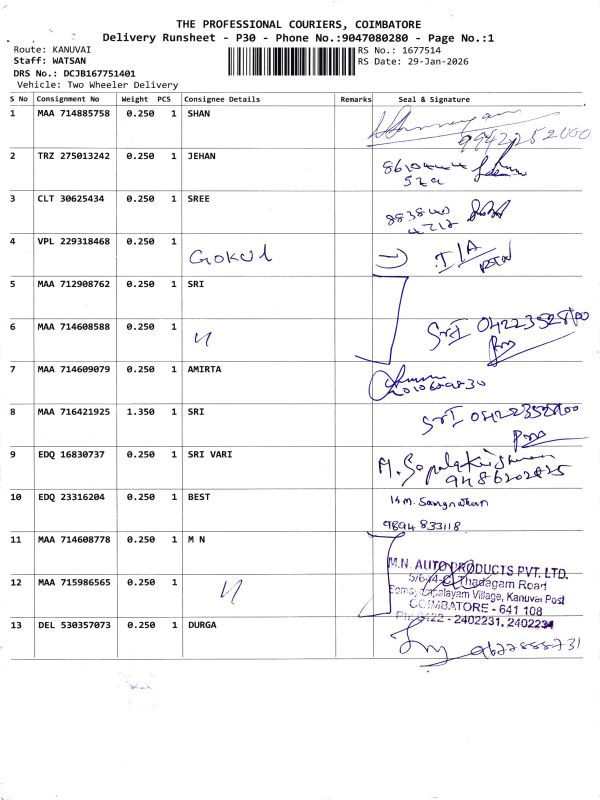 THE PROFESSIONAL COURIERS, COIMBATORE
Delivery Runsheet - P30 - Phone No.:9047080280 - Page No.:1
Route: KANUVAI
RS No.: 1677514
Staff: WATSAN
RS Date: 29-Jan-2026
DRS No.: DCJB167751401
Vehicle: Two Wheeler Delivery
S No Consignment No Weight PCS Consignee Details Remarks Seal & Signature
1 MAA 714885758 0.250 1 SHAN
9942252000
2 TRZ 275013242 0.250 1 JEHAN
3 CLT 30625434 0.250 1 SREE
4 VPL 229318468 0.250 1 GOKUL I/A
5 MAA 712908762 0.250 1 SRI
6 MAA 714608588 0.250 1 〃 SrI
7 MAA 714609079 0.250 1 AMIRTA
8 MAA 716421925 1.350 1 SRI SrI
9 EDQ 16830737 0.250 1 SRI VARI M. Gopalakrishnan
9486202825
10 EDQ 23316204 0.250 1 BEST
9894 833118
11 MAA 714608778 0.250 1 M N
M.N. AUTO PRODUCTS PVT. LTD.
Thadagam Road
12 MAA 715986565 0.250 1 〃
Village, Kanuvai Post
COIMBATORE - 641 108
Ph: 0422 - 2402231, 2402234
13 DEL 530357073 0.250 1 DURGA